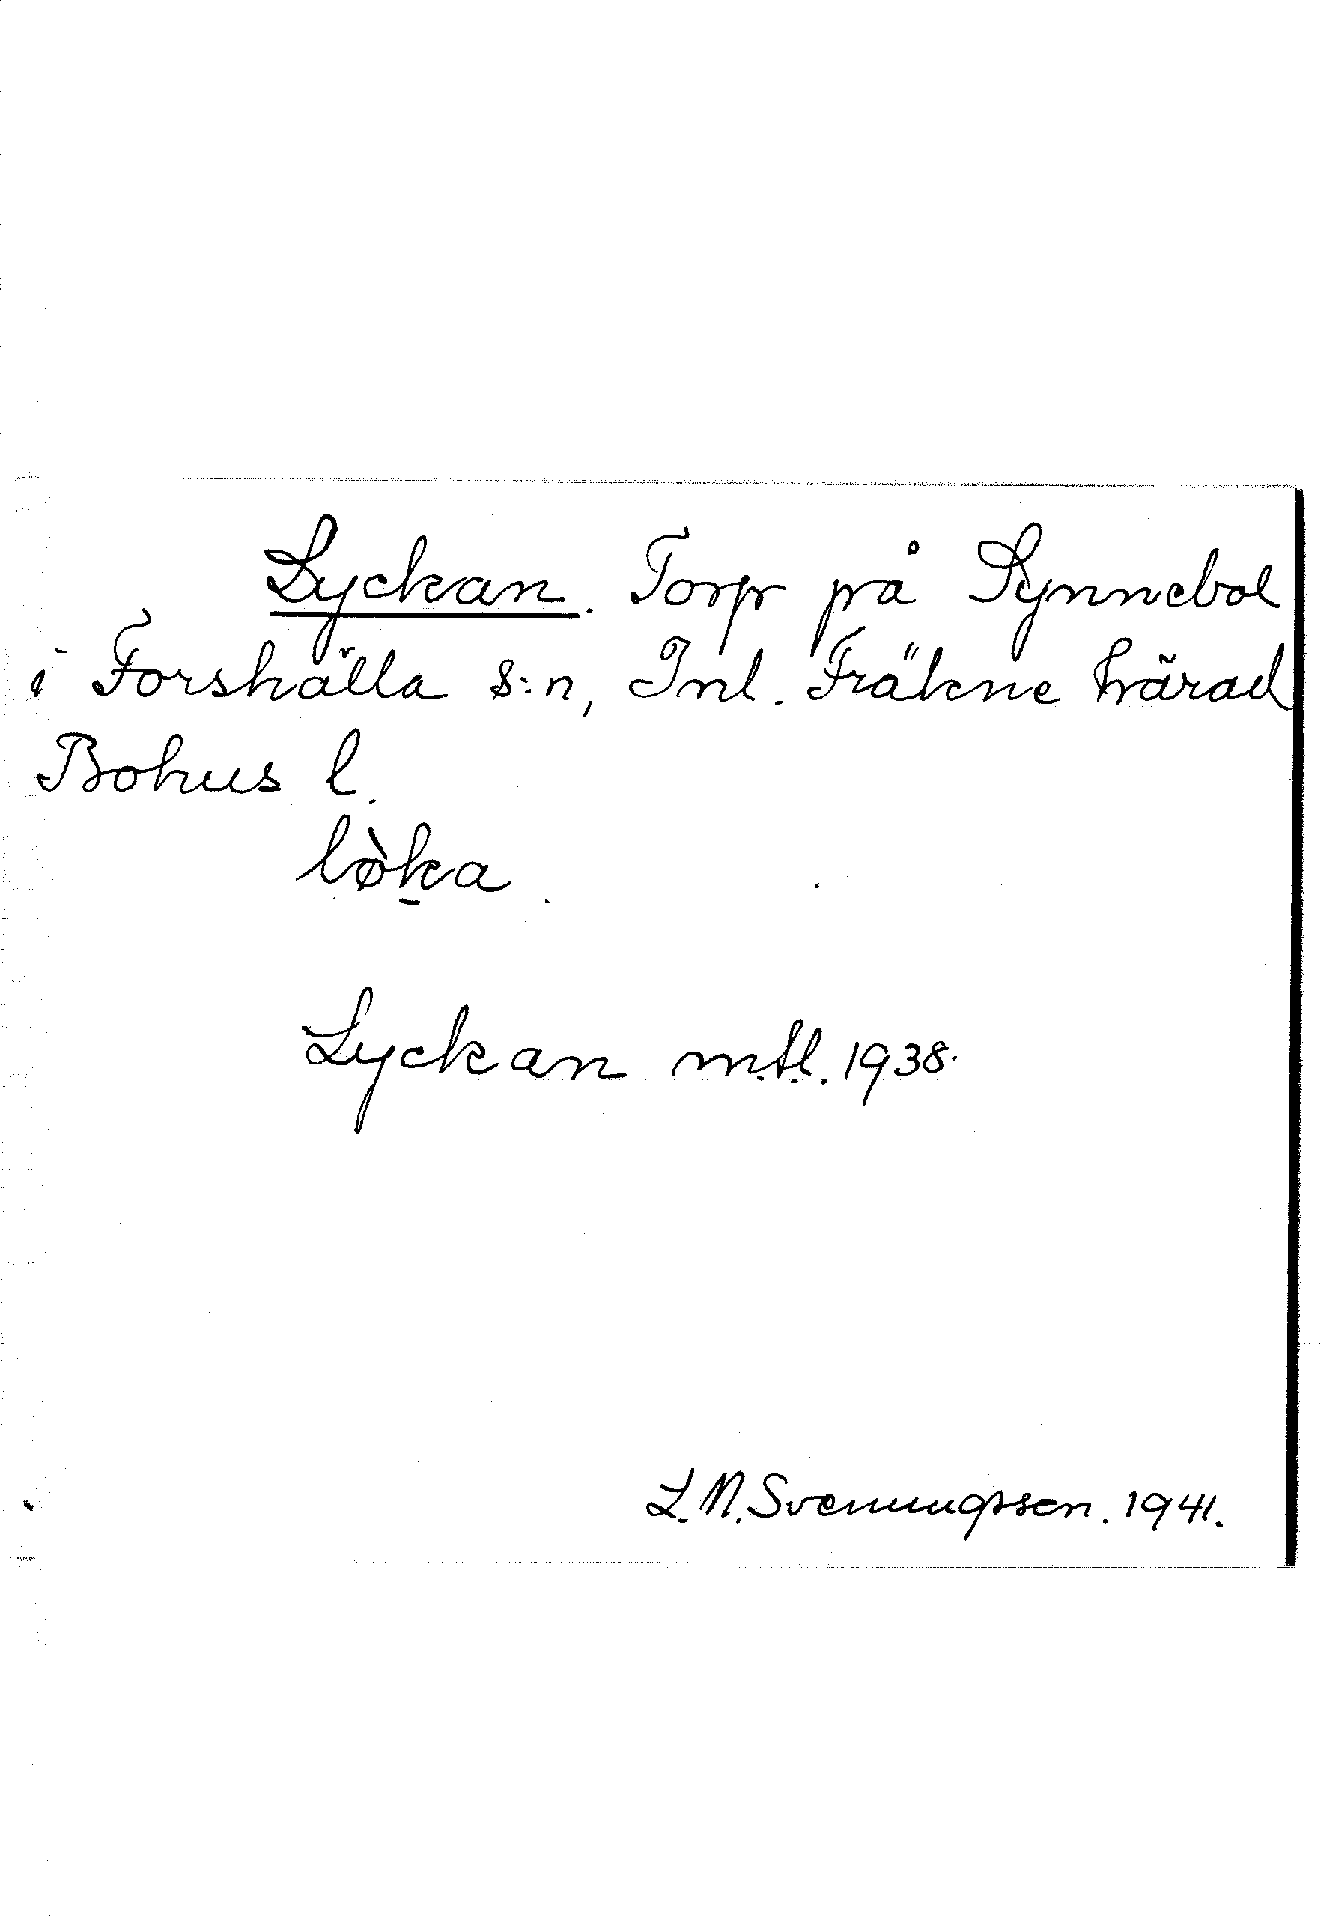 Lyckan. Torp på Synnebol
i Forshälla s:n, Inl. Fräkne härad
Bohus l.
lø̀k̠a.
Lyckan m.tl. 1938.
L.N. Svenungsson. 1941.